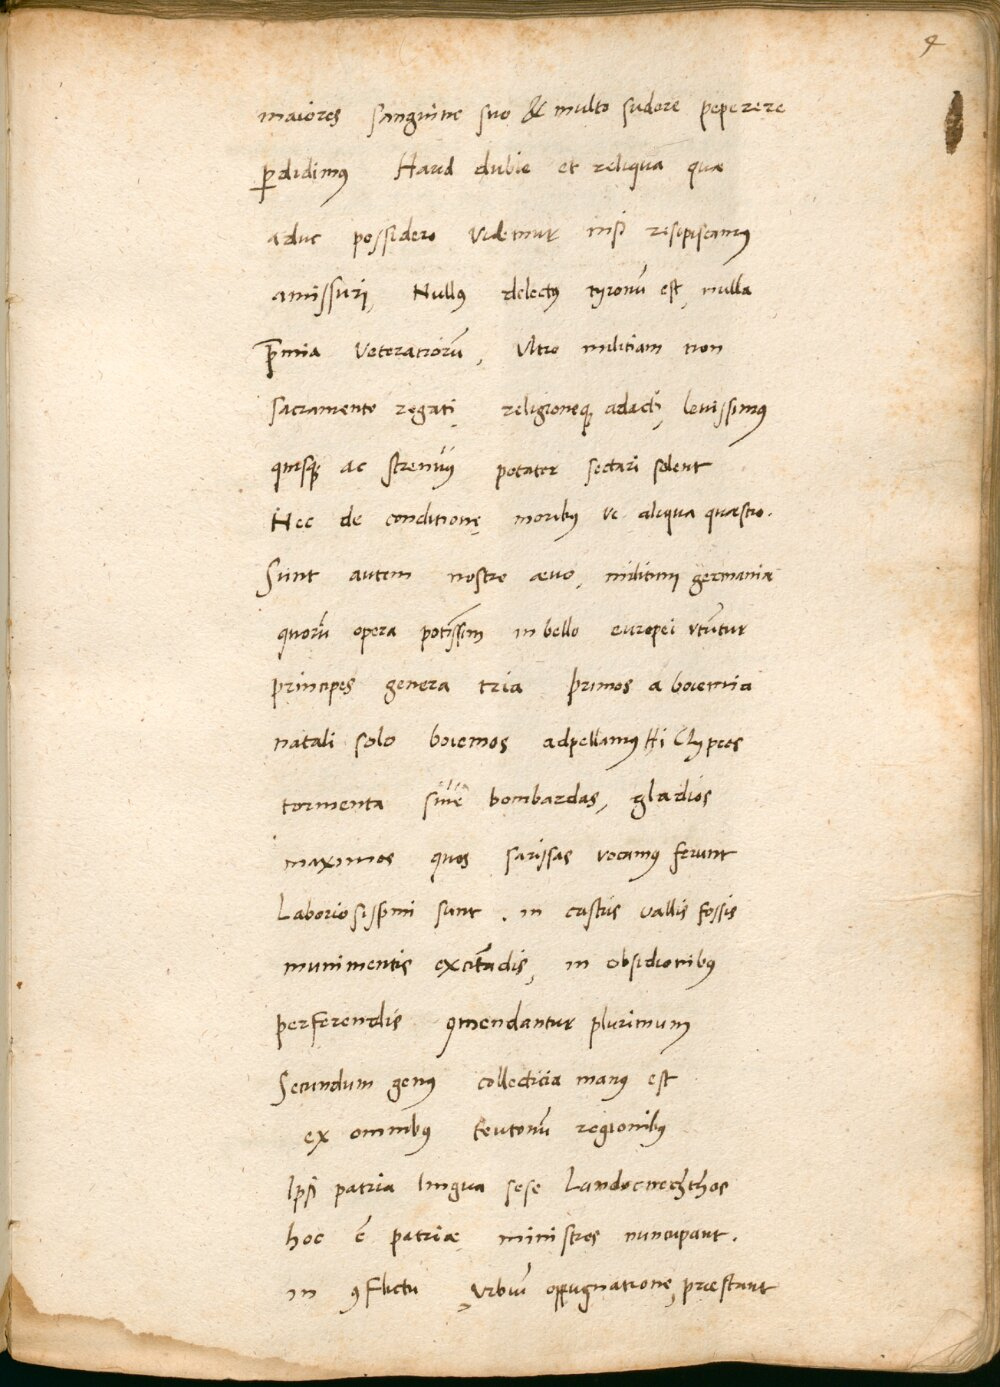 4
maiores sanguine suo & multo sudore peperere
ꝑdidimꝰ Haud dubie et reliqua quæ
aduc possidere videmur nisi resipiscamꝰ
amissuri, Nullꝰ delectꝰ tyronū est, nulla
p̄mia veteratiorū, Ultro militiam non
sacramento rogati, religioneqꝫ adacti, levissimꝰ
quisqꝫ ac strenuꝰ potator sectari solent
Nec de conditione moribꝰ ve aliqua quæstio.
Sunt autem nostro ævo, militum germaniæ
quorū opera potissim̄ in bello europei utūtur
principes genera tria primos a boiemia
natali solo boiemos adpellamꝰ Hi Clypeos
tormenta sive bombardas, gladios
maximos quos sarissas vocamꝰ ferunt
Laboriosissimi sunt. in castris vallis fossis
munimentis excitādis, in obsidionibꝰ
perferendis ꝯmendantur plurimum
Secundum genꝰ collecticia manꝰ est
ex omnibꝰ teutonū regionibꝰ
Ipsi patria lingua sese Landocnechthos
hoc ē patriæ ministros nuncupant.
in ꝯflictu, Urbiū oppugnatione, præstant